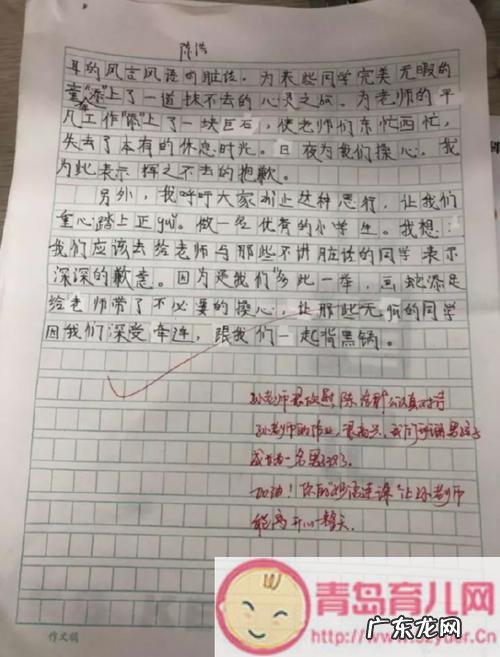 陈浩
耳的风言风语的脏话，为某些同学完美无暇的
童"添"上了一道抹不去的心灵之
为老师的平
凡工作"添"上了一块巨石，使老师们东忙西忙，
失去了本有的休息时光。日夜为我们操心。我
为此表示挥之不去的抱歉。
另外，我呼吁大家 止这种恶行，让我们
童心踏上正guǐ。做一名优秀的小学生。我想：
我们应该去给老师与那些不讲脏话的同学表示
深深的歉意。因为是我们"多此一举，画蛇添足
给老师带了不必要的操心，让那些无 的同学
因我们深受牵连，跟我们一起背黑锅。
孙老师很欣慰 陈浩 认真对待
孙老师的作业，很高兴，
成 一名男
加油！你的"妙语连珠"让孙老师
能 开心一整天。
作文稿
青岛育儿网
www.qzeryzw.com
广东龙网